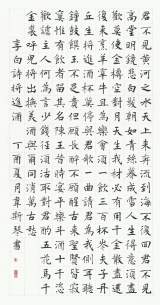 君不見黃河之水天上來奔流到海不復回君不見
高堂明鏡悲白髮朝如青絲暮成雪人生得意須盡
歡莫使金樽空對月天生我材必有用千金散盡還
復來烹羊宰牛且為樂會須一飲三百杯岑夫子丹
丘生將進酒杯莫停與君歌一曲請君為我側耳聽
鐘鼓饌玉不足貴但願長醉不願醒古來聖賢皆寂
寞惟有飲者留其名陳王昔時宴平樂斗酒十千恣
歡謔主人何為言少錢徑須沽取對君酌五花馬千
金裘呼兒將出換美酒與爾同銷萬古愁
李白詩將進酒
丁酉夏月韋斯琴書